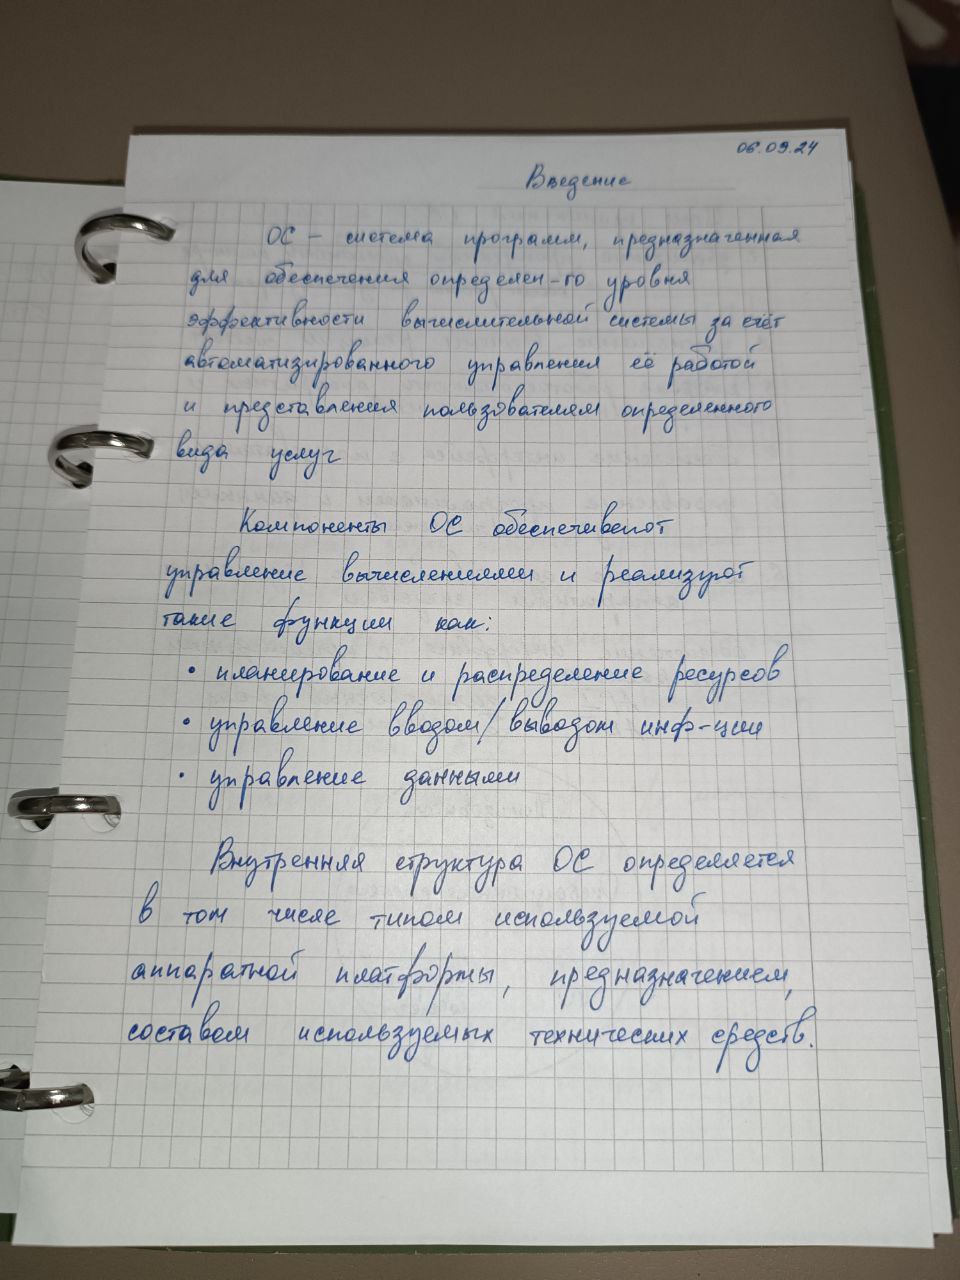 06.09.24
Введение
ОС – система программ, предназначенная
для обеспечения определен-го уровня
эффективности вычислительной системы за счёт
автоматизированного управления её работой
и представления пользователям определенного
вида услуг
Компоненты ОС обеспечивают
управление вычислениями и реализуют
такие функции как:
• планирование и распределение ресурсов
• управление вводом/выводом инф-ции
• управление данными
Внутренняя структура ОС определяется
в том числе типом используемой
аппаратной платформы, предназначением,
составом используемых технических средств.